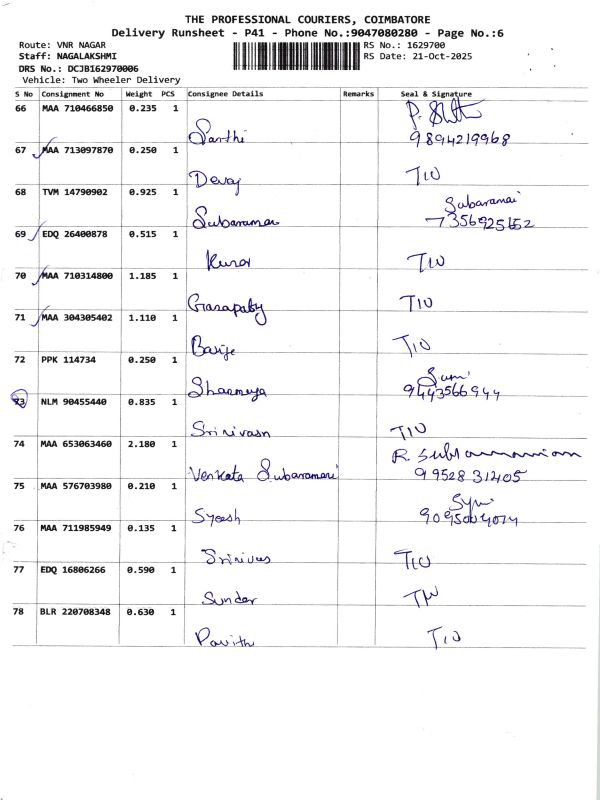 THE PROFESSIONAL COURIERS, COIMBATORE
Delivery Runsheet - P41 - Phone No.:9047080280 - Page No.:6
Route: VNR NAGAR RS No.: 1629700
Staff: NAGALAKSHMI RS Date: 21-Oct-2025
DRS No.: DCJB162970006
Vehicle: Two Wheeler Delivery
S No Consignment No Weight PCS Consignee Details Remarks Seal & Signature
66 MAA 710466850 0.235 1
Sarthi 9894219968
67 MAA 713097870 0.250 1
Devaj TIU
68 TVM 14790902 0.925 1 Subaramai
Subaramai 7356925652
69 EDQ 26400878 0.515 1
TIU
70 MAA 710314800 1.185 1
TIU
71 MAA 304305402 1.110 1
TIU
72 PPK 114734 0.250 1
Sharmiya 9443566944
73 NLM 90455440 0.835 1
Srinivasn TIU
74 MAA 653063460 2.180 1 R. Subramaniam
Venkata Subaramani 9952831405
75 MAA 576703980 0.210 1
76 MAA 711985949 0.135 1
Srinivas TIU
77 EDQ 16806266 0.590 1
Sunder TIU
78 BLR 220708348 0.630 1
Pavith TIU